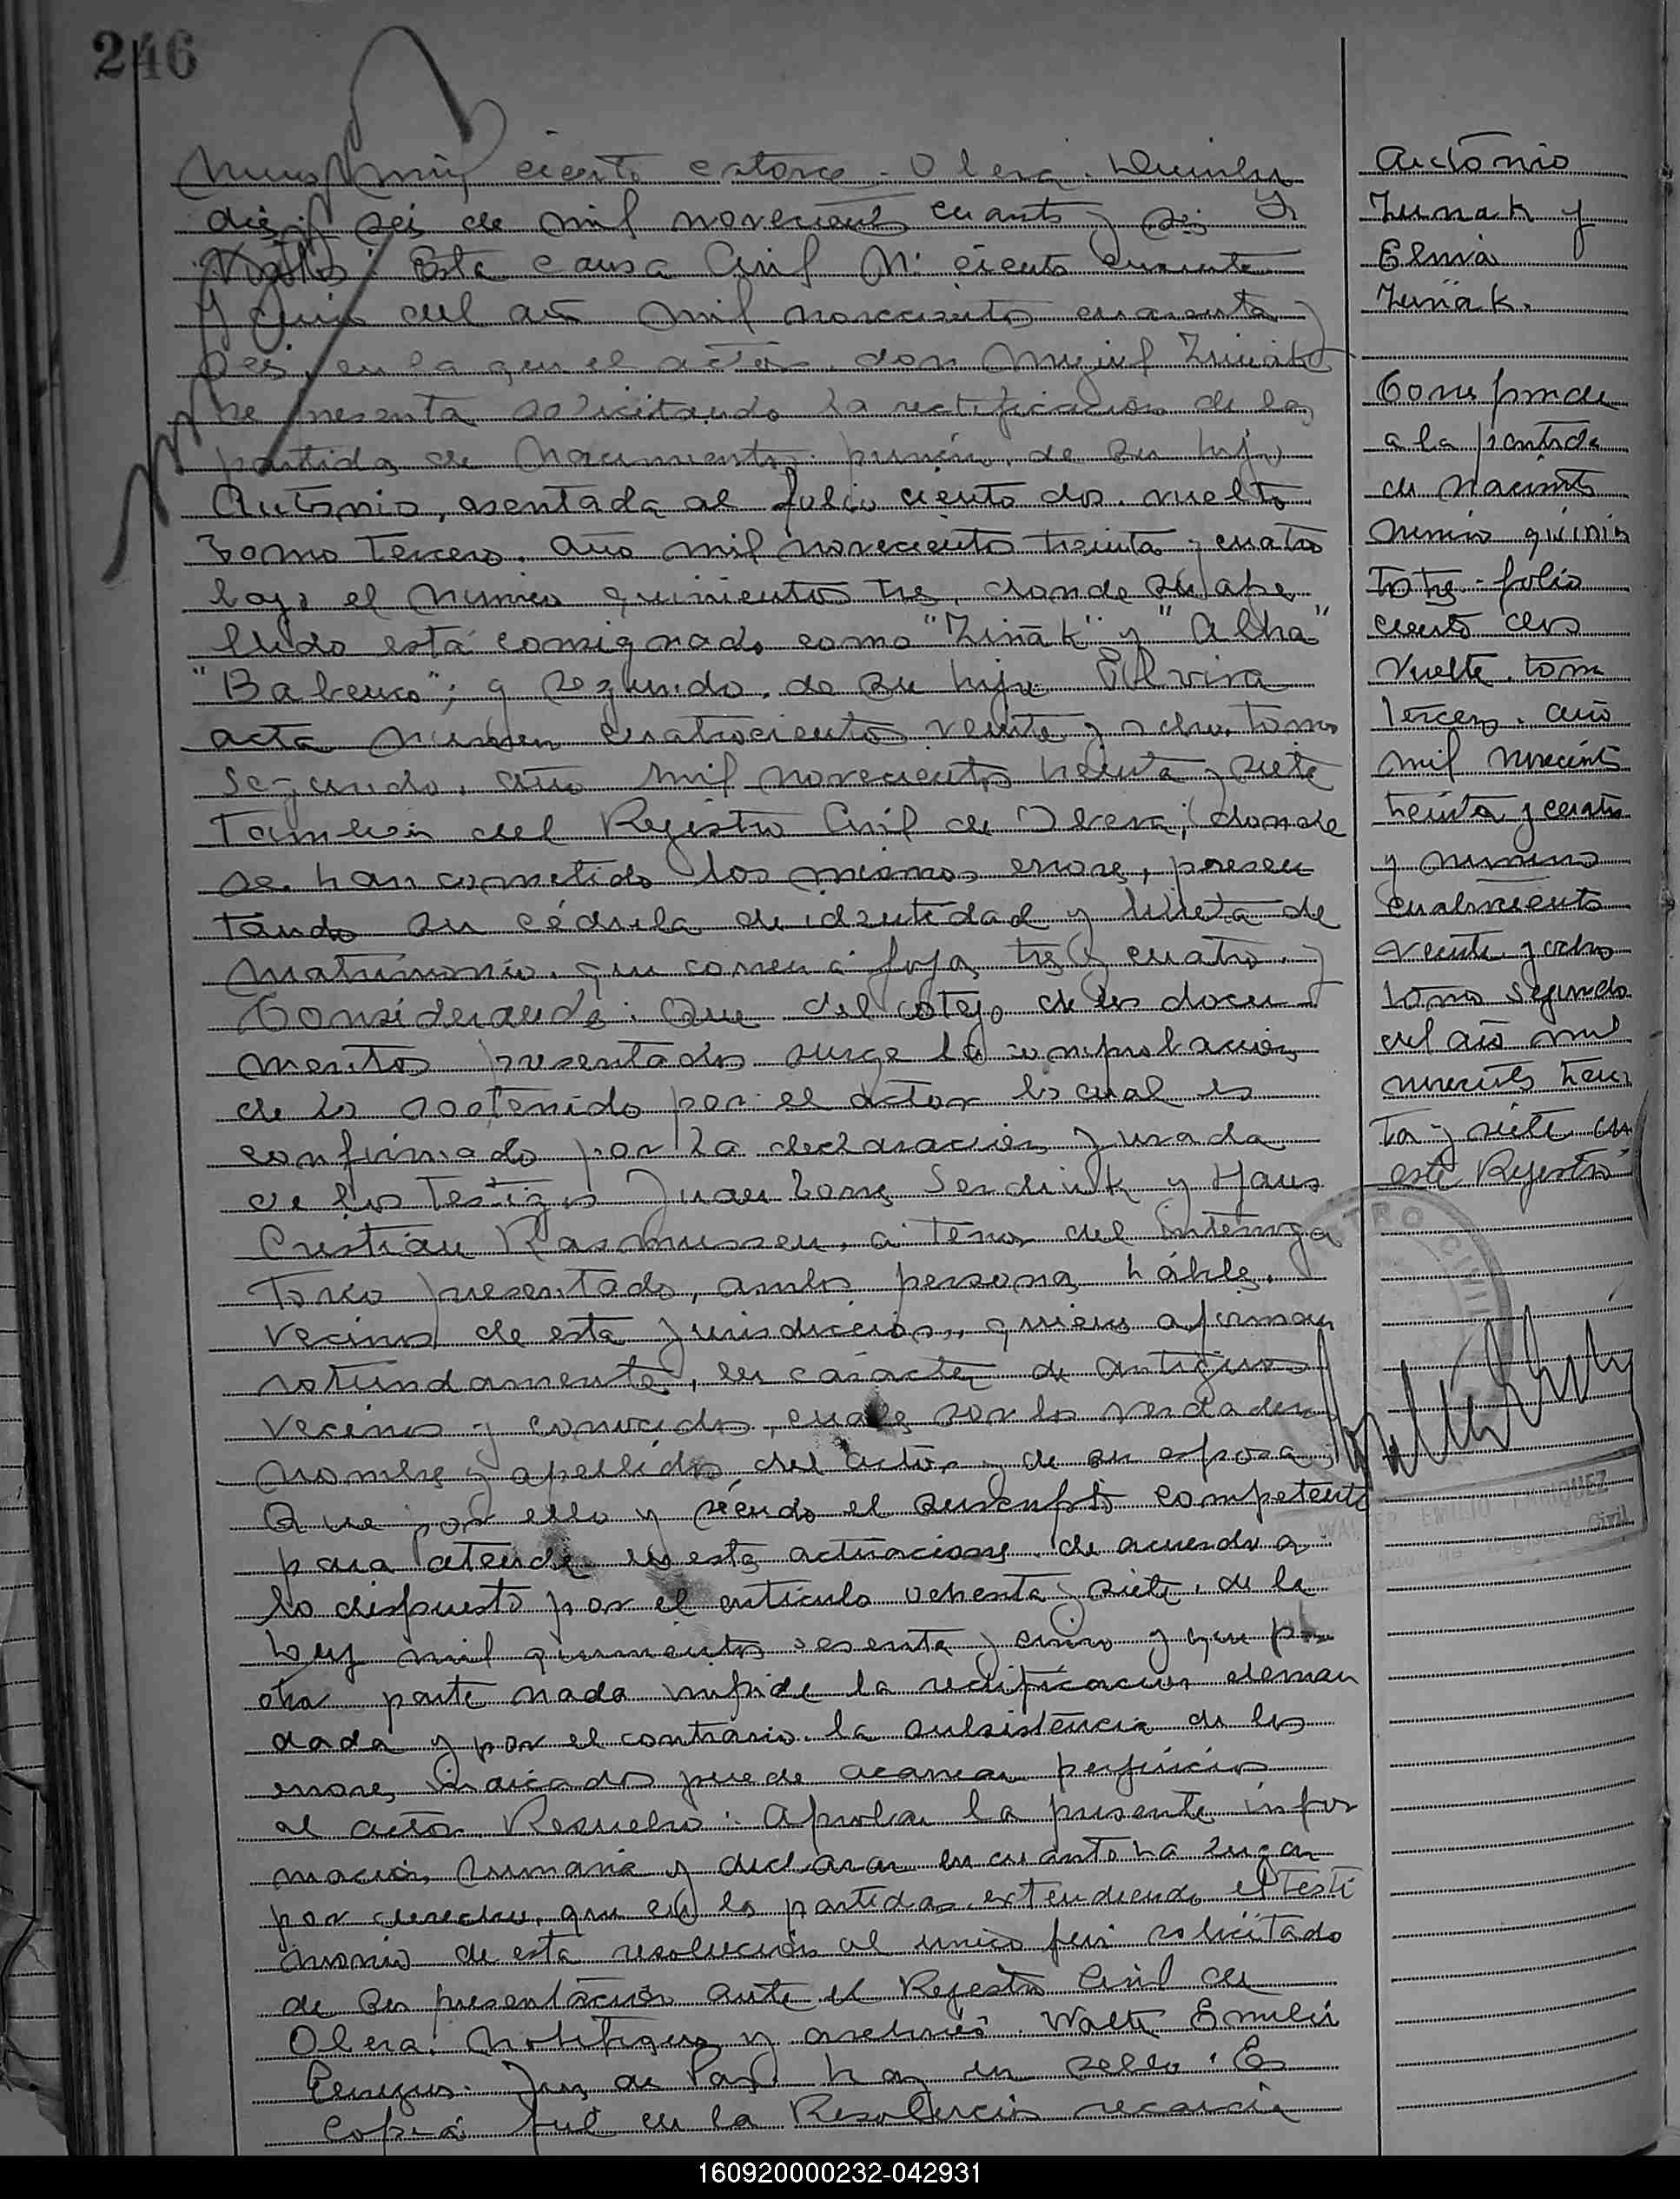 246
ciento catorce. Obera.
diez y seis de mil novecientos cuarenta y seis Y
Vistos: Esta causa Civil N: ciento cuarenta
y cinco del año mil novecientos cuarenta y
seis, en la que el actor don
se presenta solicitando la rectificación de las
partidas de Nacimiento, primero, de su hijo
Antonio, asentada al folio ciento dos vuelto
Tomo Tercero. año mil novecientos treinta y cuatro
bajo el número quinientos tres, donde su ape
llido está consignado como "Ziñak" y "Alha"
"Babenco"; y segundo, de su hija Elvira
acta número cuatrocientos veinte y ocho, tomo
segundo, año mil novecientos treinta y siete
También del Registro Civil de Obera; donde
se han cometido los mismos errores, presen
tando su cédula de identidad y libreta de
matrimonio, que corren a fojas tres y cuatro. y
Considerando: Que del cotejo de los docu
mentos presentados surge la comprobación
de lo sostenido por el actor lo cual es
confirmado por la declaración jurada
de los testigos Juan Serdiuk y Hans
Cristian Rasmussen, a tenor del interroga
torio presentado, ambos personas hábiles,
vecinos de esta jurisdicción, quienes afirman
rotundamente, en carácter de antiguos
vecinos y conocidos, cuales son los verdaderos
nombres y apellidos del actor y de su esposa
Que por ello y siendo el suscripto competente
para atender en estas actuaciones de acuerdo a
lo dispuesto por el artículo ochenta y siete, de la
Ley mil quinientos sesenta y cinco y que por
otra parte nada impide la rectificación deman
dada y por el contrario la subsistencia de los
errores indicados puede acarrear perjuicios
al actor Resuelvo: Aprobar la presente infor
mación sumaria y declarar en cuanto ha lugar
por derecho, que en las partidas extendiendo el testi
monio de esta resolución al único fin solicitado
de su presentación ante el Registro Civil de
Obera. Notifíquese y archívese. Walter Emilio
Enriquez. Juez de Paz. hay un sello. Es
Copia fiel de la Resolución recaida
Antonio
Zunak y
Elvira
Zuñak.
Corresponde
a la partida
de Nacimto
número quinien
tos tres. folio
ciento dos
vuelto. tomo
tercero. año
mil novecientos
treinta y cuatro
y número
cuatrocientos
veinte y ocho
tomo segundo
del año mil
novecientos trein
ta y siete en
este Registro
WALTER EMILIO ENRIQUEZ
160920000232-042931